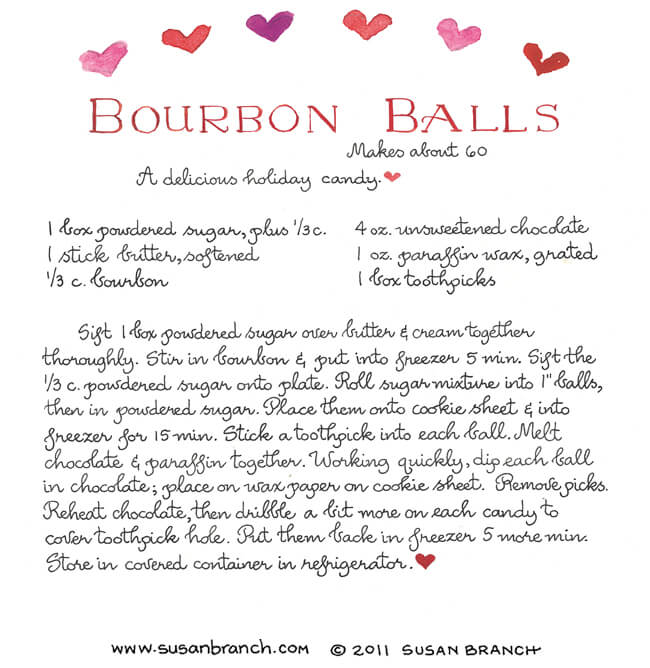 BOURBON BALLS
Makes about 60
A delicious holiday candy.
1 box powdered sugar, plus 1/3 c.
1 stick butter, softened
1/3 c. bourbon
4 oz. unsweetened chocolate
1 oz. paraffin wax, grated
1 box toothpicks
Sift 1 box powdered sugar over butter & cream together
thoroughly. Stir in bourbon & put into freezer 5 min. Sift the
1/3 c. powdered sugar onto plate. Roll sugar mixture into 1" balls,
then in powdered sugar. Place them onto cookie sheet & into
freezer for 15 min. Stick a toothpick into each ball. Melt
chocolate & paraffin together. Working quickly, dip each ball
in chocolate; place on wax paper on cookie sheet. Remove picks.
Reheat chocolate, then dribble a bit more on each candy to
cover toothpick hole. Put them back in freezer 5 more min.
Store in covered container in refrigerator.
www.susanbranch.com © 2011 SUSAN BRANCH